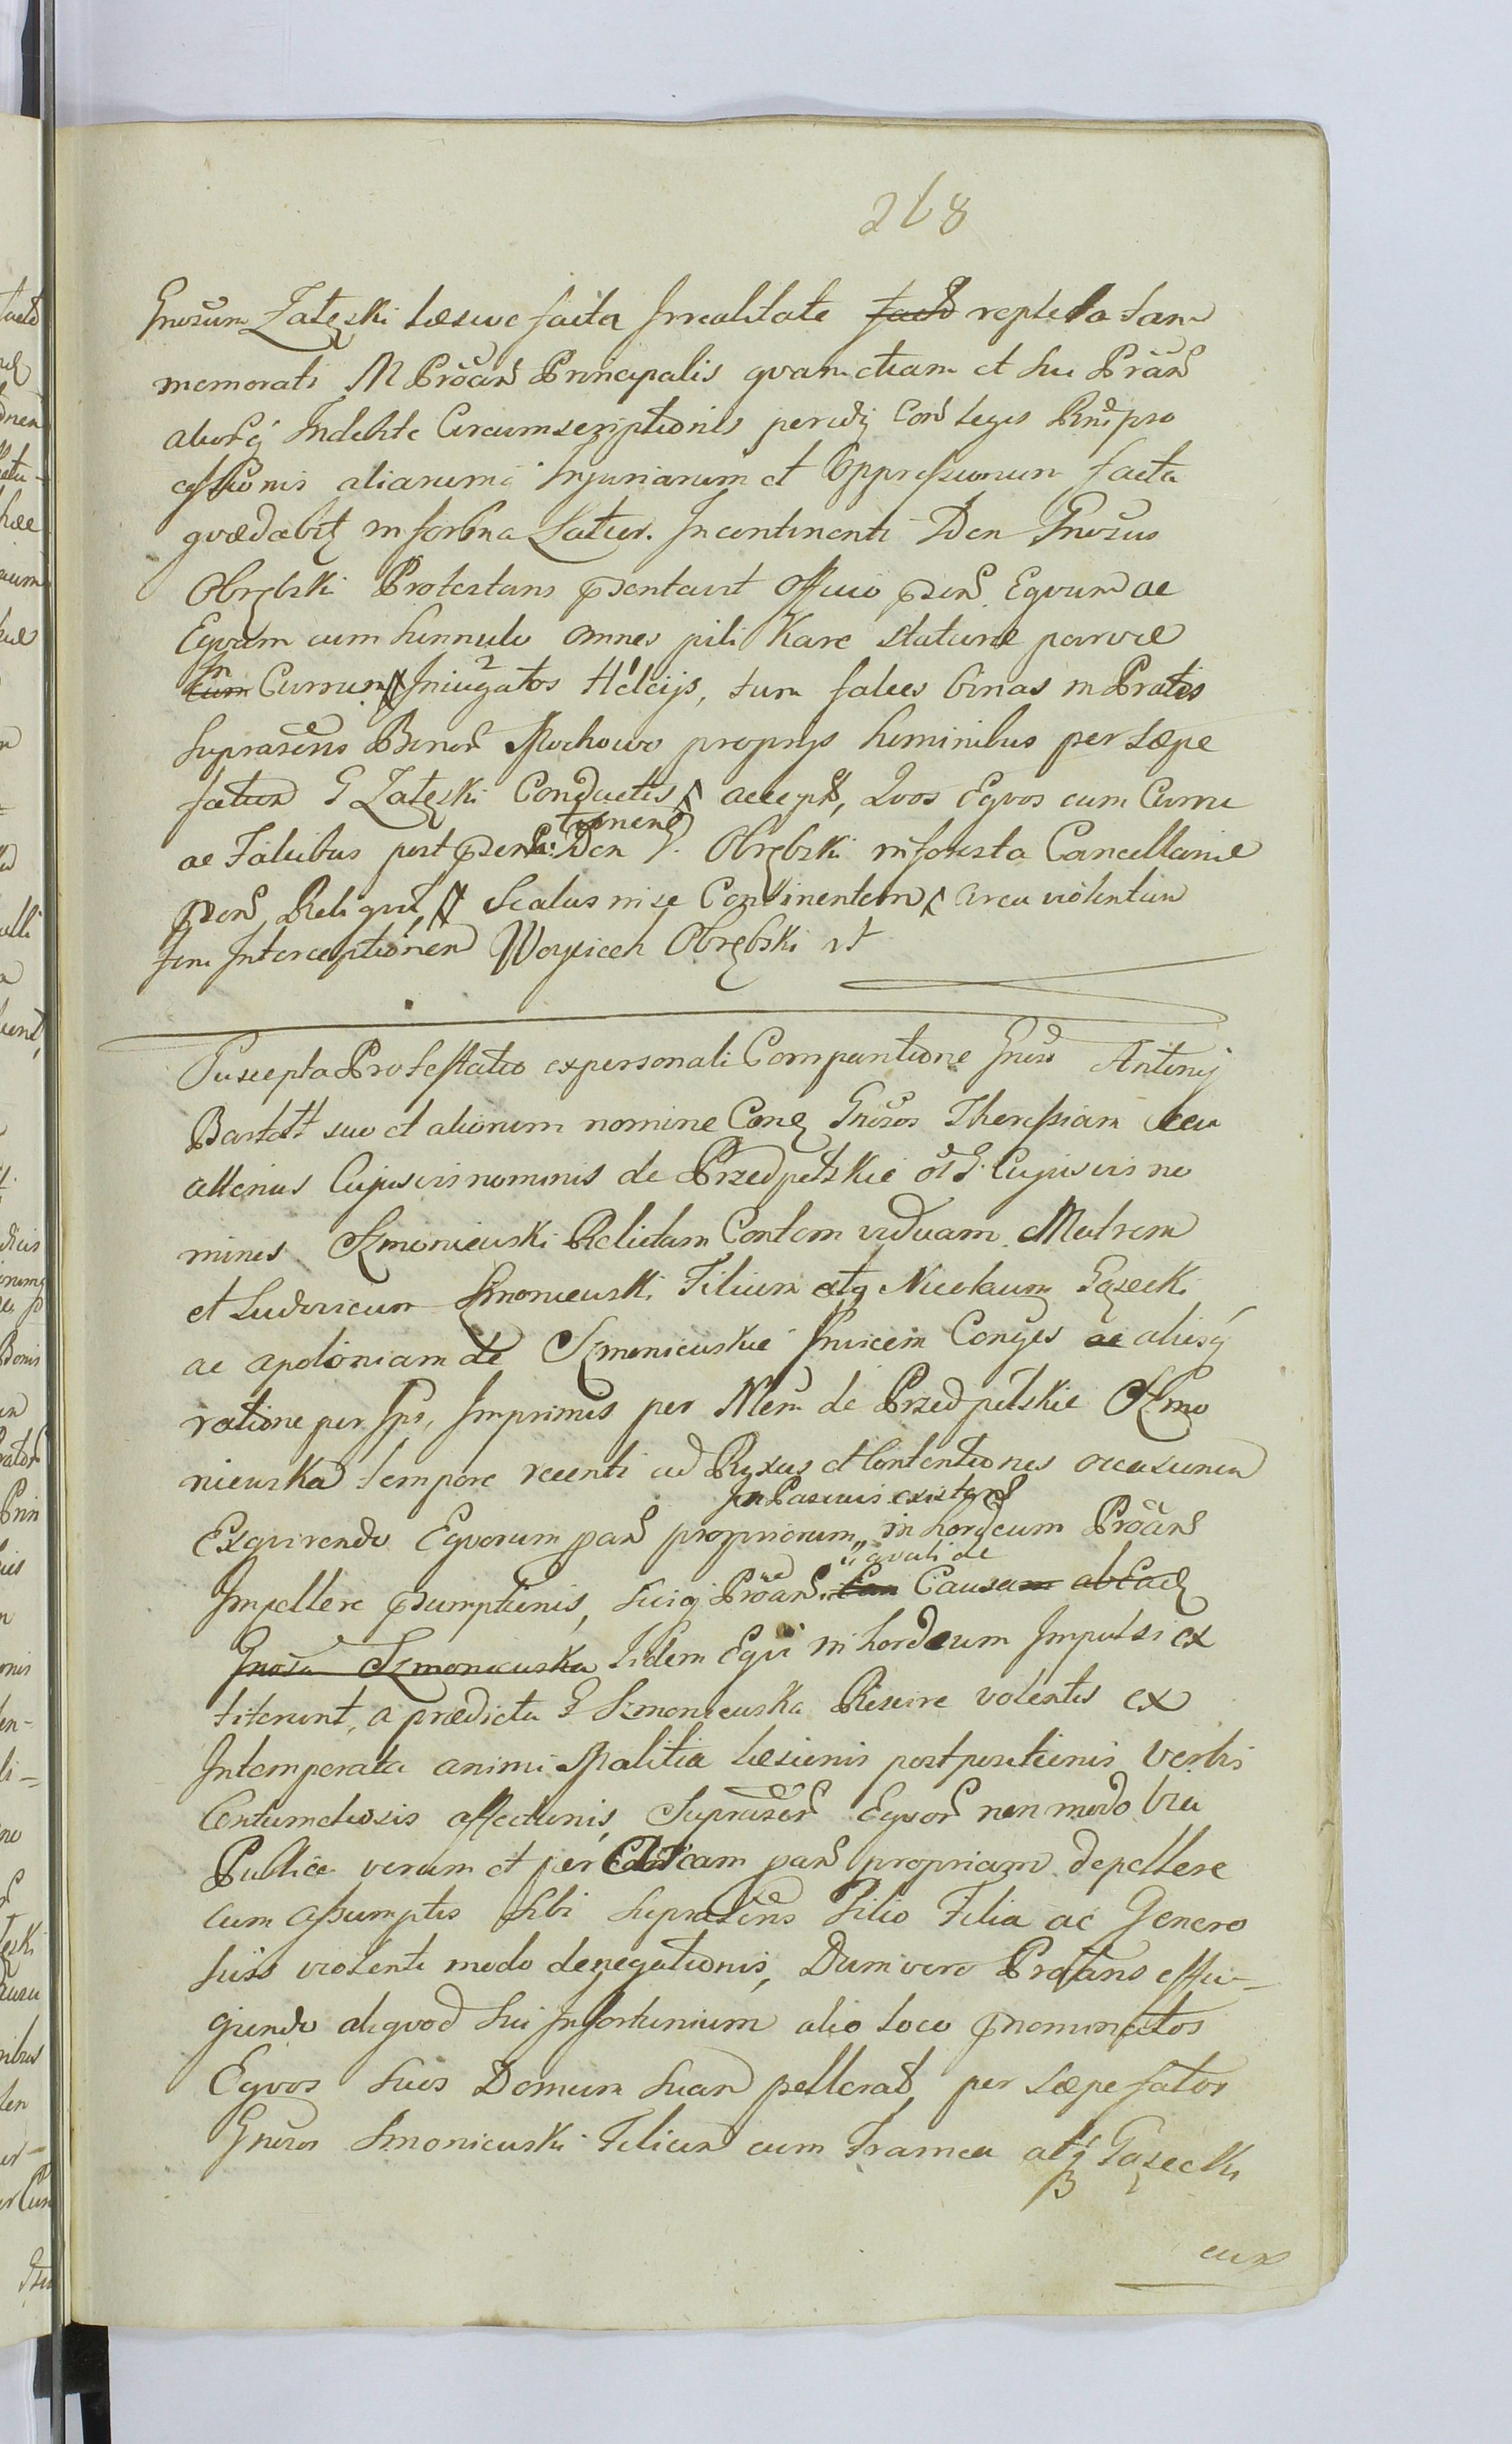 268
Gnosum Zatęski læsive facta Irrealitate facto repleta tam
memorati M Proãn Principalis qvam etiam et sui Prãn
aliorq Indebite Circumscriptionis
cessionis aliarumq Injuriarum et Oppressionum facta
qvædabit in forma Latior. Incontinenti Iden Gnosus
Obrębski Protestans pdentavit Officio pdend Eqvum ac
Eqvam cum hinnulo omnes pili Kare staturæ parvæ
In
tum Currum Iniugatos Helcijs, tum falces binas in Pratis
suprascris Bonor Mochowo proprijs hominibus per sæpe
fatum G Zatęski Conductis accept, Qvos Eqvos cum Curru
tionene
ac Falcibus post Iden G. Obrębski in foresta Cancellariæ
Reliqvit, Scalas in se Continentem circa violentam
Interceptionem Woyiceh Obrębski
Suscepta Protestatio ex personali Comparitione Gnosi Antonij
Bartolt suo et aliorum nomine Con Gnosos Theressiam seu
alterius Cujusvis nominis de Przedpelskie G. Cujusvis no
minis Szmoniewski Relictam Contem viduam Matrem
et Ludovicum Szmoniewski Filium atq Nicolaum Gąsecki
ac apoloniam de Szmoniewskie Invicem Conges ac aliosq
ratione per Ips, Imprimis per Nlem de Przedpelskie Szmo
niewska tempore recenti ad Rixas et Contentiones occasionem
In Pascuis existens
Exqvirendo Eqvorum par propriorum in hordeum Proãn
qvali de
Impellere psumptionis, suiq Proãn Causam ab Ead
Gnosa Szmoniewska Iidem Eqvi in hordeum Impulsi ex
titerunt, a prædicta G Szmoniewska Rescire volentis ex
Intemperata animi Malitia læsionis postpositionis verbis
Contumeliosis affectionis, Suprascr Eqvor non modo via
Publica verum et per par propriam depellere
cum assumptis sibi suprascris Filio Filia ac Genero
suis violenti modo denegationis, Dum vero Protans effu-
giendo aliqvod sui Infortunium alio loco pnominatos
Eqvos suos Domum suam pellerat, per sæpe fatos
Gnosos Szmoniewski Filium cum Framea atq Gąsecki
cum